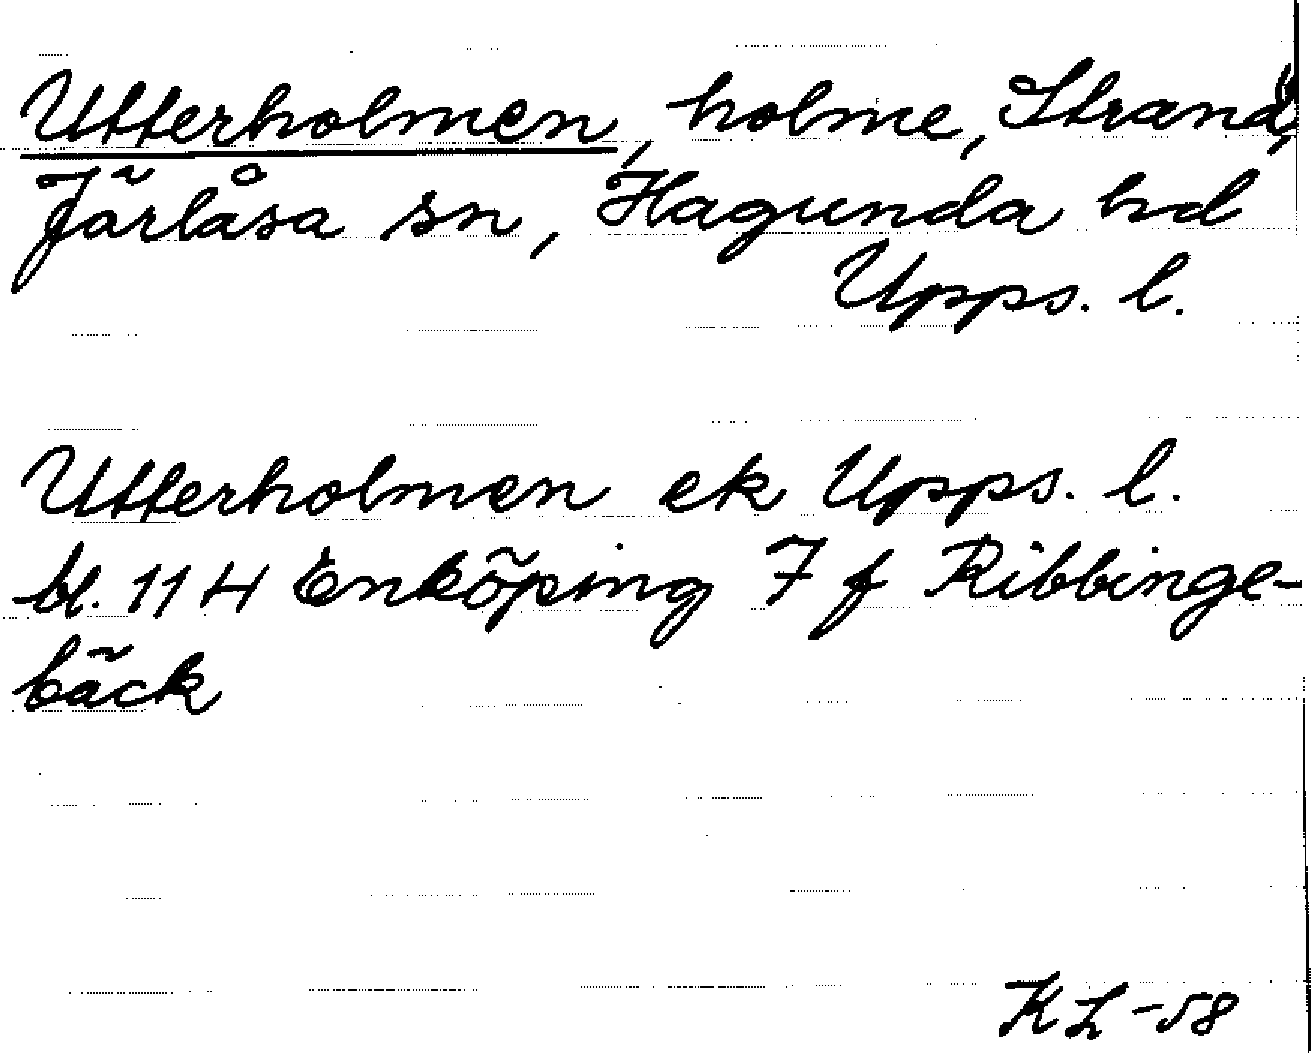 Utterholmen, holme, Strand,
Järlåsa sn, Hagunda hd
Upps. l.
Utterholmen ek Upps. l.
bl. 114 Enköping 7 f Ribbinge-
bäck
KL-58